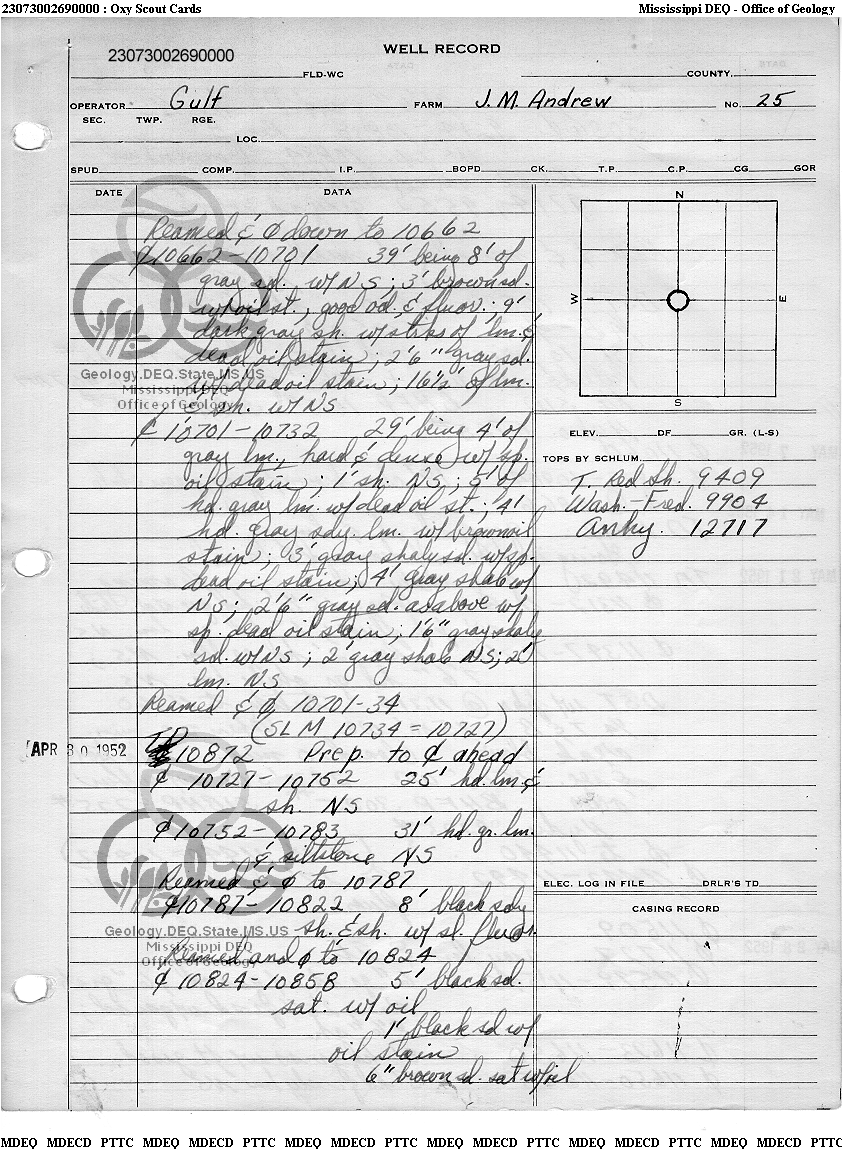 23073002690000 : Oxy Scout Cards Mississippi DEQ - Office of Geology
WELL RECORD
23073002690000
FLD-WC COUNTY
OPERATOR Gulf FARM J. M. Andrew No. 25
SEC. TWP. RGE.
LOC.
SPUD COMP. I.P. BOPD CK. T.P. C.P. CG GOR
DATE DATA
Reamed & ¢ down to 10662
¢ 10662-10701 39' being 8' of
gray sd. w/ NS; 3' brown sd.
w/ oil st., good od. & fluor. 9'
dark gray sh. w/ stks of lm. &
dead oil stain; 2'6" gray sd.
w/ dead oil stain; 16½' of lm.
& sh. w/ NS
¢ 10701-10732 29' being 4' of
gray lm., hard & dense w/ sp.
oil stain; 1' sh. NS; 5' of
hd. gray lm. w/ dead oil st.; 4'
hd. gray sdy. lm. w/ brown oil
stain; 3' gray shaly sd. w/ sp.
dead oil stain; 4' gray shale w/
NS; 2'6" gray sd. as above w/
sp. dead oil stain; 1'6" gray shaly
sd. w/ NS; 2' gray shale NS; 2'
lm. NS
Reamed & ¢ 10701-34
(SLM 10734 = 10727)
APR 30 1952
TD 10872 Prep. to ¢ ahead
¢ 10727-10752 25' hd. lm. &
sh. NS
¢ 10752-10783 31' hd. gr. lm.
& siltstone NS
Reamed & ¢ to 10787
¢ 10787-10822 8' black sdy
sh. & sh. w/ sl. fluor.
Reamed and ¢ to 10824
¢ 10824-10858 5' black sd.
sat. w/ oil
1' black sd w/
oil stain
6" brown sd. sat w/ oil
N
W E
S
ELEV. DF GR. (L-S)
TOPS BY SCHLUM.
T. Red Sh. 9409
Wash.-Fred. 9904
Anhy. 12717
ELEC. LOG IN FILE DRLR'S TD
CASING RECORD
Geology.DEQ.State.MS.US
Mississippi DEQ
Office of Geology
Geology.DEQ.State.MS.US
Mississippi DEQ
Office of Geology
MDEQ MDECD PTTC MDEQ MDECD PTTC MDEQ MDECD PTTC MDEQ MDECD PTTC MDEQ MDECD PTTC